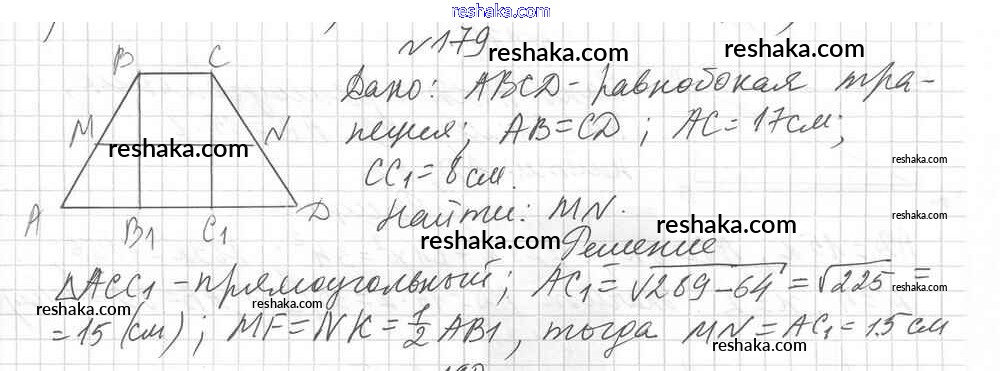 reshaka.com
№179
reshaka.com
B C
Дано: ABCD - равнобокая тра-
M N
reshaka.com
пеция; AB = CD ; AC = 17 см;
reshaka.com
CC1 = 8 см.
A B1 C1 D
Найти: MN.
reshaka.com
reshaka.com
Решение
△ACC1 - прямоугольный; AC1 = √289-64 = √225 =
reshaka.com
reshaka.com
reshaka.com
= 15 (см) ; MF = NK = 1/2 AB1 , тогда MN = AC1 = 15 см
reshaka.com
reshaka.com